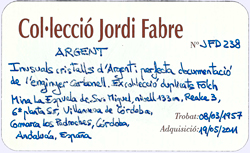 Col·lecció Jordi Fabre
ARGENT
Nº JFD238
Inusuals cristalls d'Argent i perfecta documentació
de l'enginyer Carbonell. Ex-col·lecció duplicats Folch
Mina La Espuela de San Miguel, nivell 133 m, Realce 3,
6ª planta Sur, Villanueva de Córdoba,
Comarca los Pedroches, Córdoba,
Andalucía, España
Trobat: 08/03/1957
Adquisició: 19/05/2011